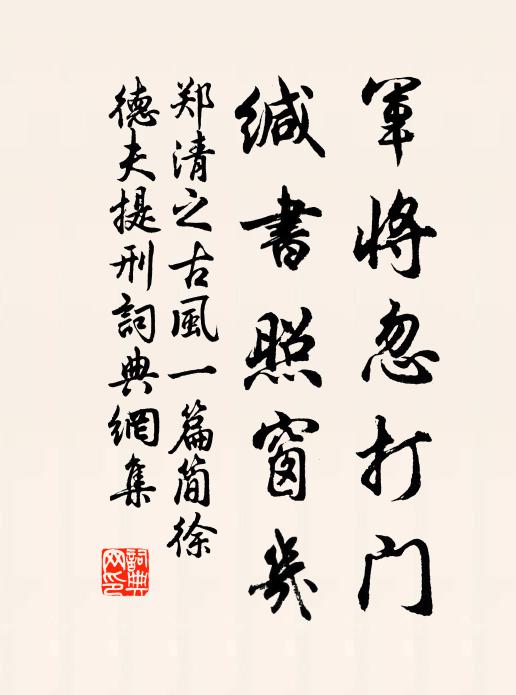 軍將忽打门
緘書照窗幾
郑清之古風一篇简徐
德夫提刑詞典網集
詞典网印